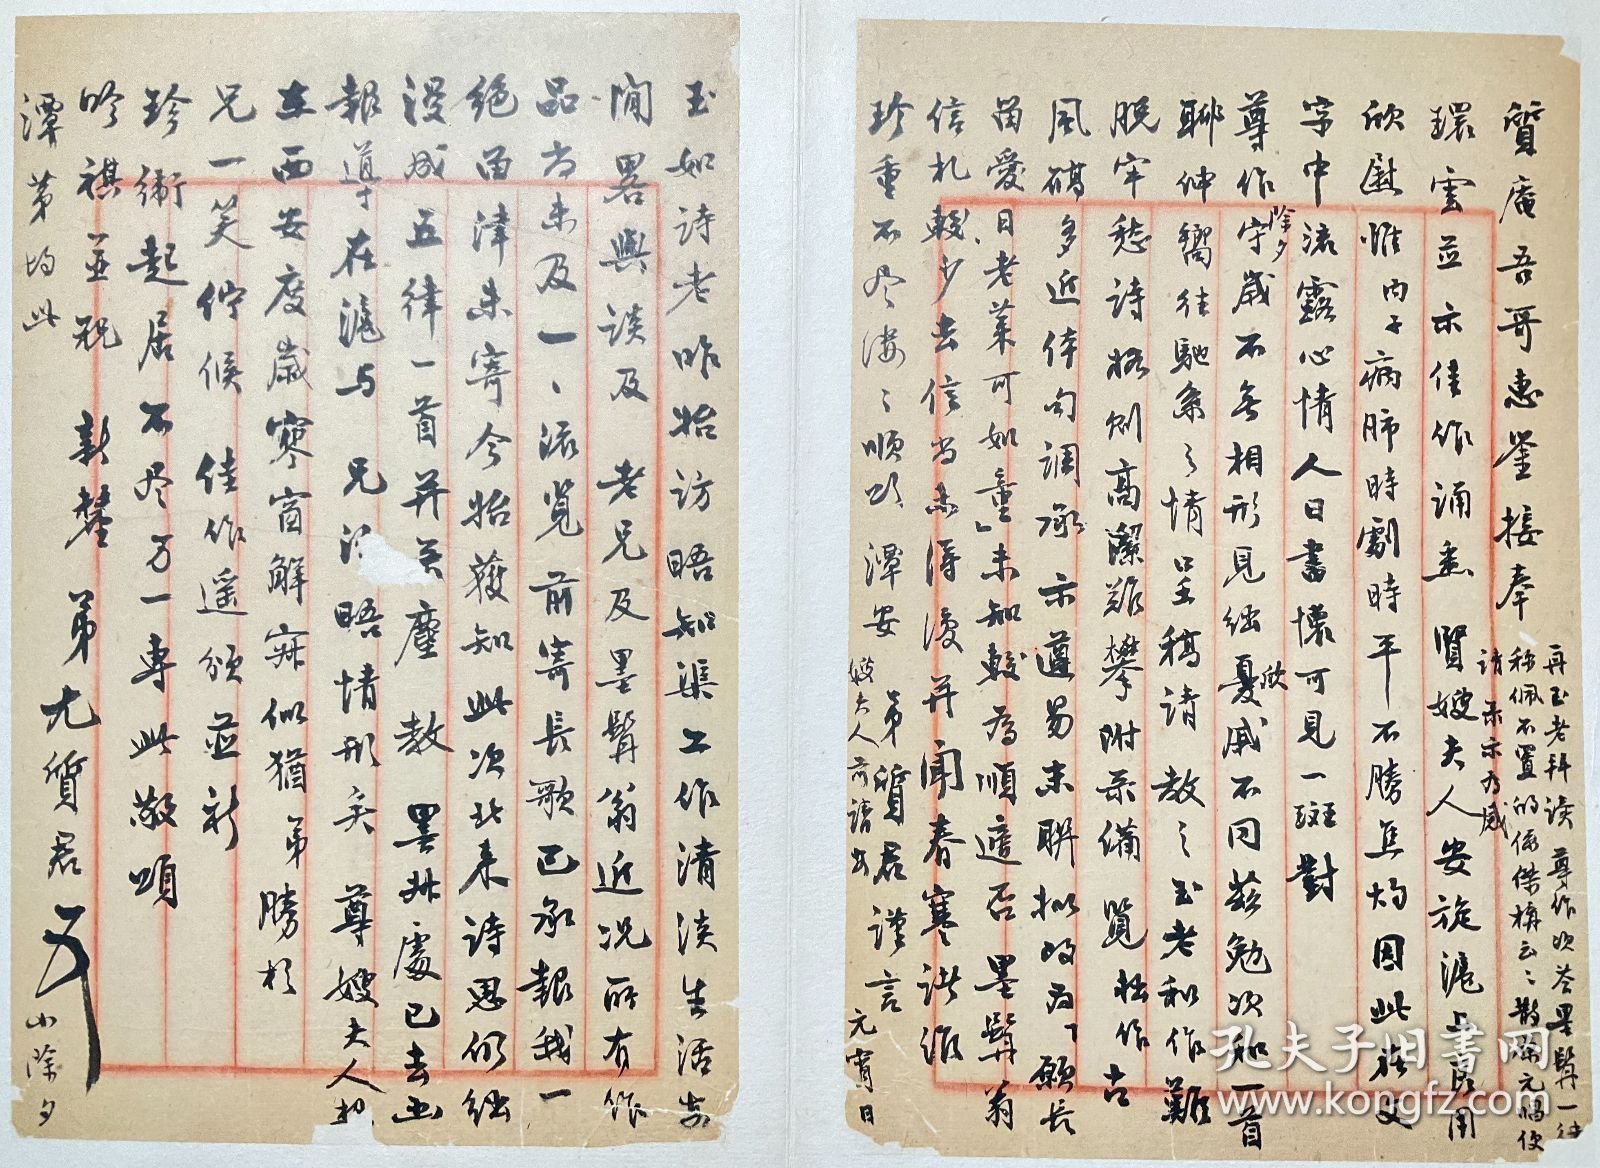 質庵吾哥惠鑒接奉
環雲並示佳作誦悉　賢嫂夫人安旋滬上
欣慰惟內子病肺時劇時平不勝焦灼因此在文
字中流露心情人日書懷可見一斑對
尊作除夕守歲不無相形見絀憂戚不同茲勉次和一首
聊伸嚮往馳系之情呈稿請　教之玉老和作難
脫牢愁詩格則高潔難攀附录備覽　拙作古
風礙多近体句調承　示遵易末聯擬改為「願長
留愛日老萊可如童」未知較為順適否墨髯翁
信札較少去信当亦得復并聞春寒諸維
珍重不尽凄凄順頌　潭安
嫂夫人前請安
弟質君謹言
元宵日
再玉老拜读　尊作次答墨髯一律
称佩不置的係傑構云云
請　录示为感
玉如詩老昨始訪晤知渠工作清淡生活安
閒畧與談及　老兄及墨髯翁近況所有作
品尚未及一一流覽　前寄長歌已承報我一
絕留津未寄今始獲知此次北來詩思仍絀
漫成五律一首并并塵　教　墨丈處已去函
報導在滬与　兄　晤情形矣　尊嫂夫人
在西安度歲寒窗解寂似猶弟勝於
兄一笑佇候　佳作遥頒並祈
珍衛起居不尽万一專此敬頌
吟祺並祝　新釐　弟尤質君
小除夕
潭第均此
孔夫子旧书网
www.kongfz.com